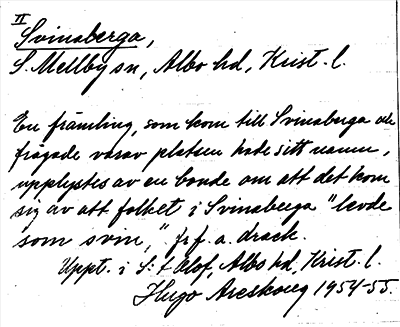 II
Svinaberga,
S. Mellby sn, Albo hd, Krist. l.
En främling, som kom till Svinaberga och
frågade varav platsen hade sitt namn,
upplystes av en bonde om att det kom
sig av att folket i Svinaberga "levde
som svin,"
Uppt. i S:t Olof, Albo hd, Krist. l.
Hugo Areskoug 1954-55.